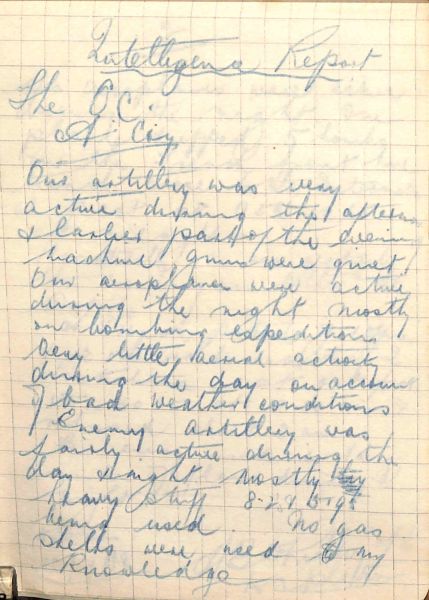 Intelligence Report
The O C.
"A" Coy
Our artillery was very
active during the afternoon
& earlier part of the evening
machine guns were quiet.
Our aeroplanes were active
during the night mostly
on bombing expeditions
Very little aerial activity
during the day on account
of bad weather conditions
Enemy artillery was
fairly active during the
day & night mostly
heavy stuff
being used. No gas
shells were used to my
Knowledge